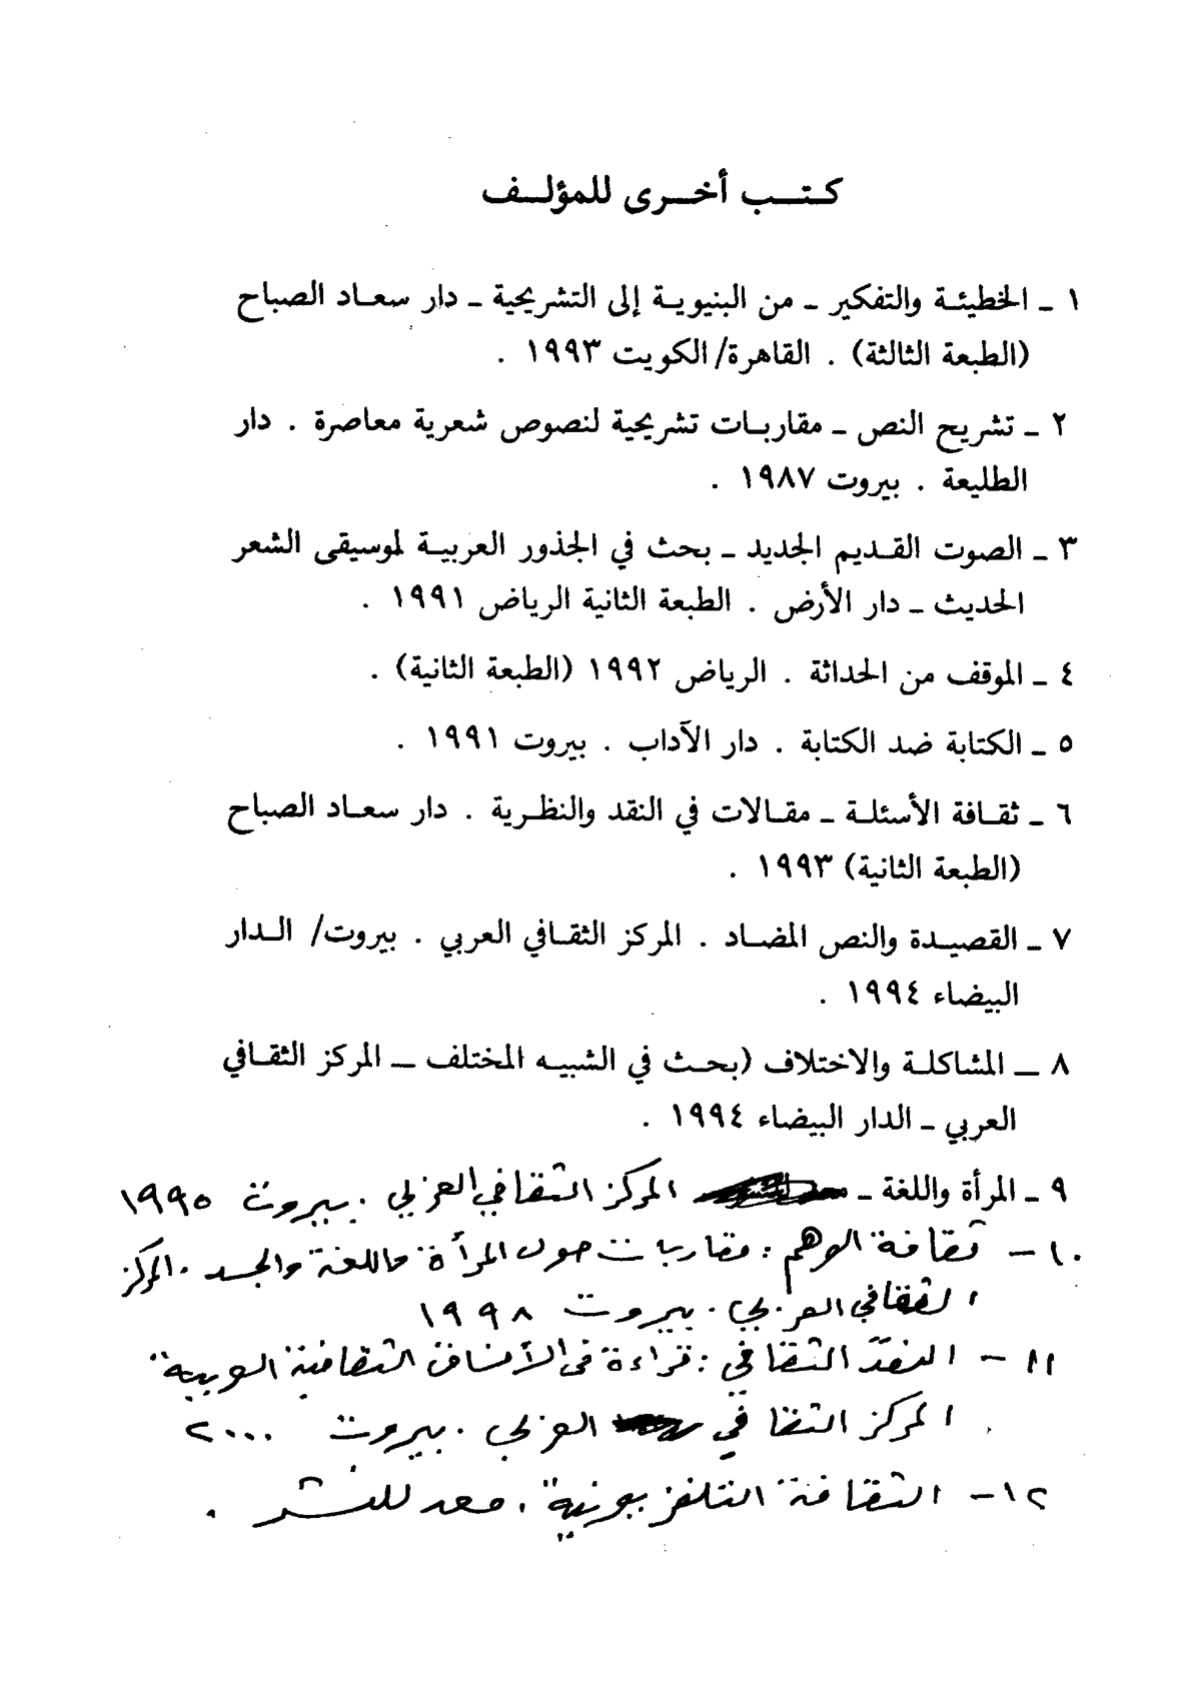 كتب أخرى للمؤلف
١ ـ الخطيئة والتفكير ـ من البنيوية إلى التشريحية ـ دار سعاد الصباح
(الطبعة الثالثة) . القاهرة/ الكويت ١٩٩٣ .
٢ ـ تشريح النص ـ مقاربات تشريحية لنصوص شعرية معاصرة . دار
الطليعة . بيروت ١٩٨٧ .
٣ ـ الصوت القديم الجديد ـ بحث في الجذور العربية لموسيقى الشعر
الحديث ـ دار الأرض . الطبعة الثانية الرياض ١٩٩١ .
٤ ـ الموقف من الحداثة . الرياض ١٩٩٢ (الطبعة الثانية) .
٥ ـ الكتابة ضد الكتابة . دار الآداب . بيروت ١٩٩١ .
٦ ـ ثقافة الأسئلة ـ مقالات في النقد والنظرية . دار سعاد الصباح
(الطبعة الثانية) ١٩٩٣ .
٧ ـ القصيدة والنص المضاد . المركز الثقافي العربي . بيروت/ الدار
البيضاء ١٩٩٤ .
٨ ـ المشاكلة والاختلاف (بحث في الشبيه المختلف ـ المركز الثقافي
العربي ـ الدار البيضاء ١٩٩٤ .
٩ ـ المرأة واللغة ـ المركز الثقافي العربي . بيروت ١٩٩٥
١٠ - ثقافة الوهم : مقاربات حول المرأة واللغة والجسد . المركز
الثقافي العربي . بيروت ١٩٩٨
١١ - النقد الثقافي : قراءة في الأنساق الثقافية العربية
المركز الثقافي العربي . بيروت ٢٠٠٠
١٢ - الثقافة التلفزيونية ، معد للنشر .